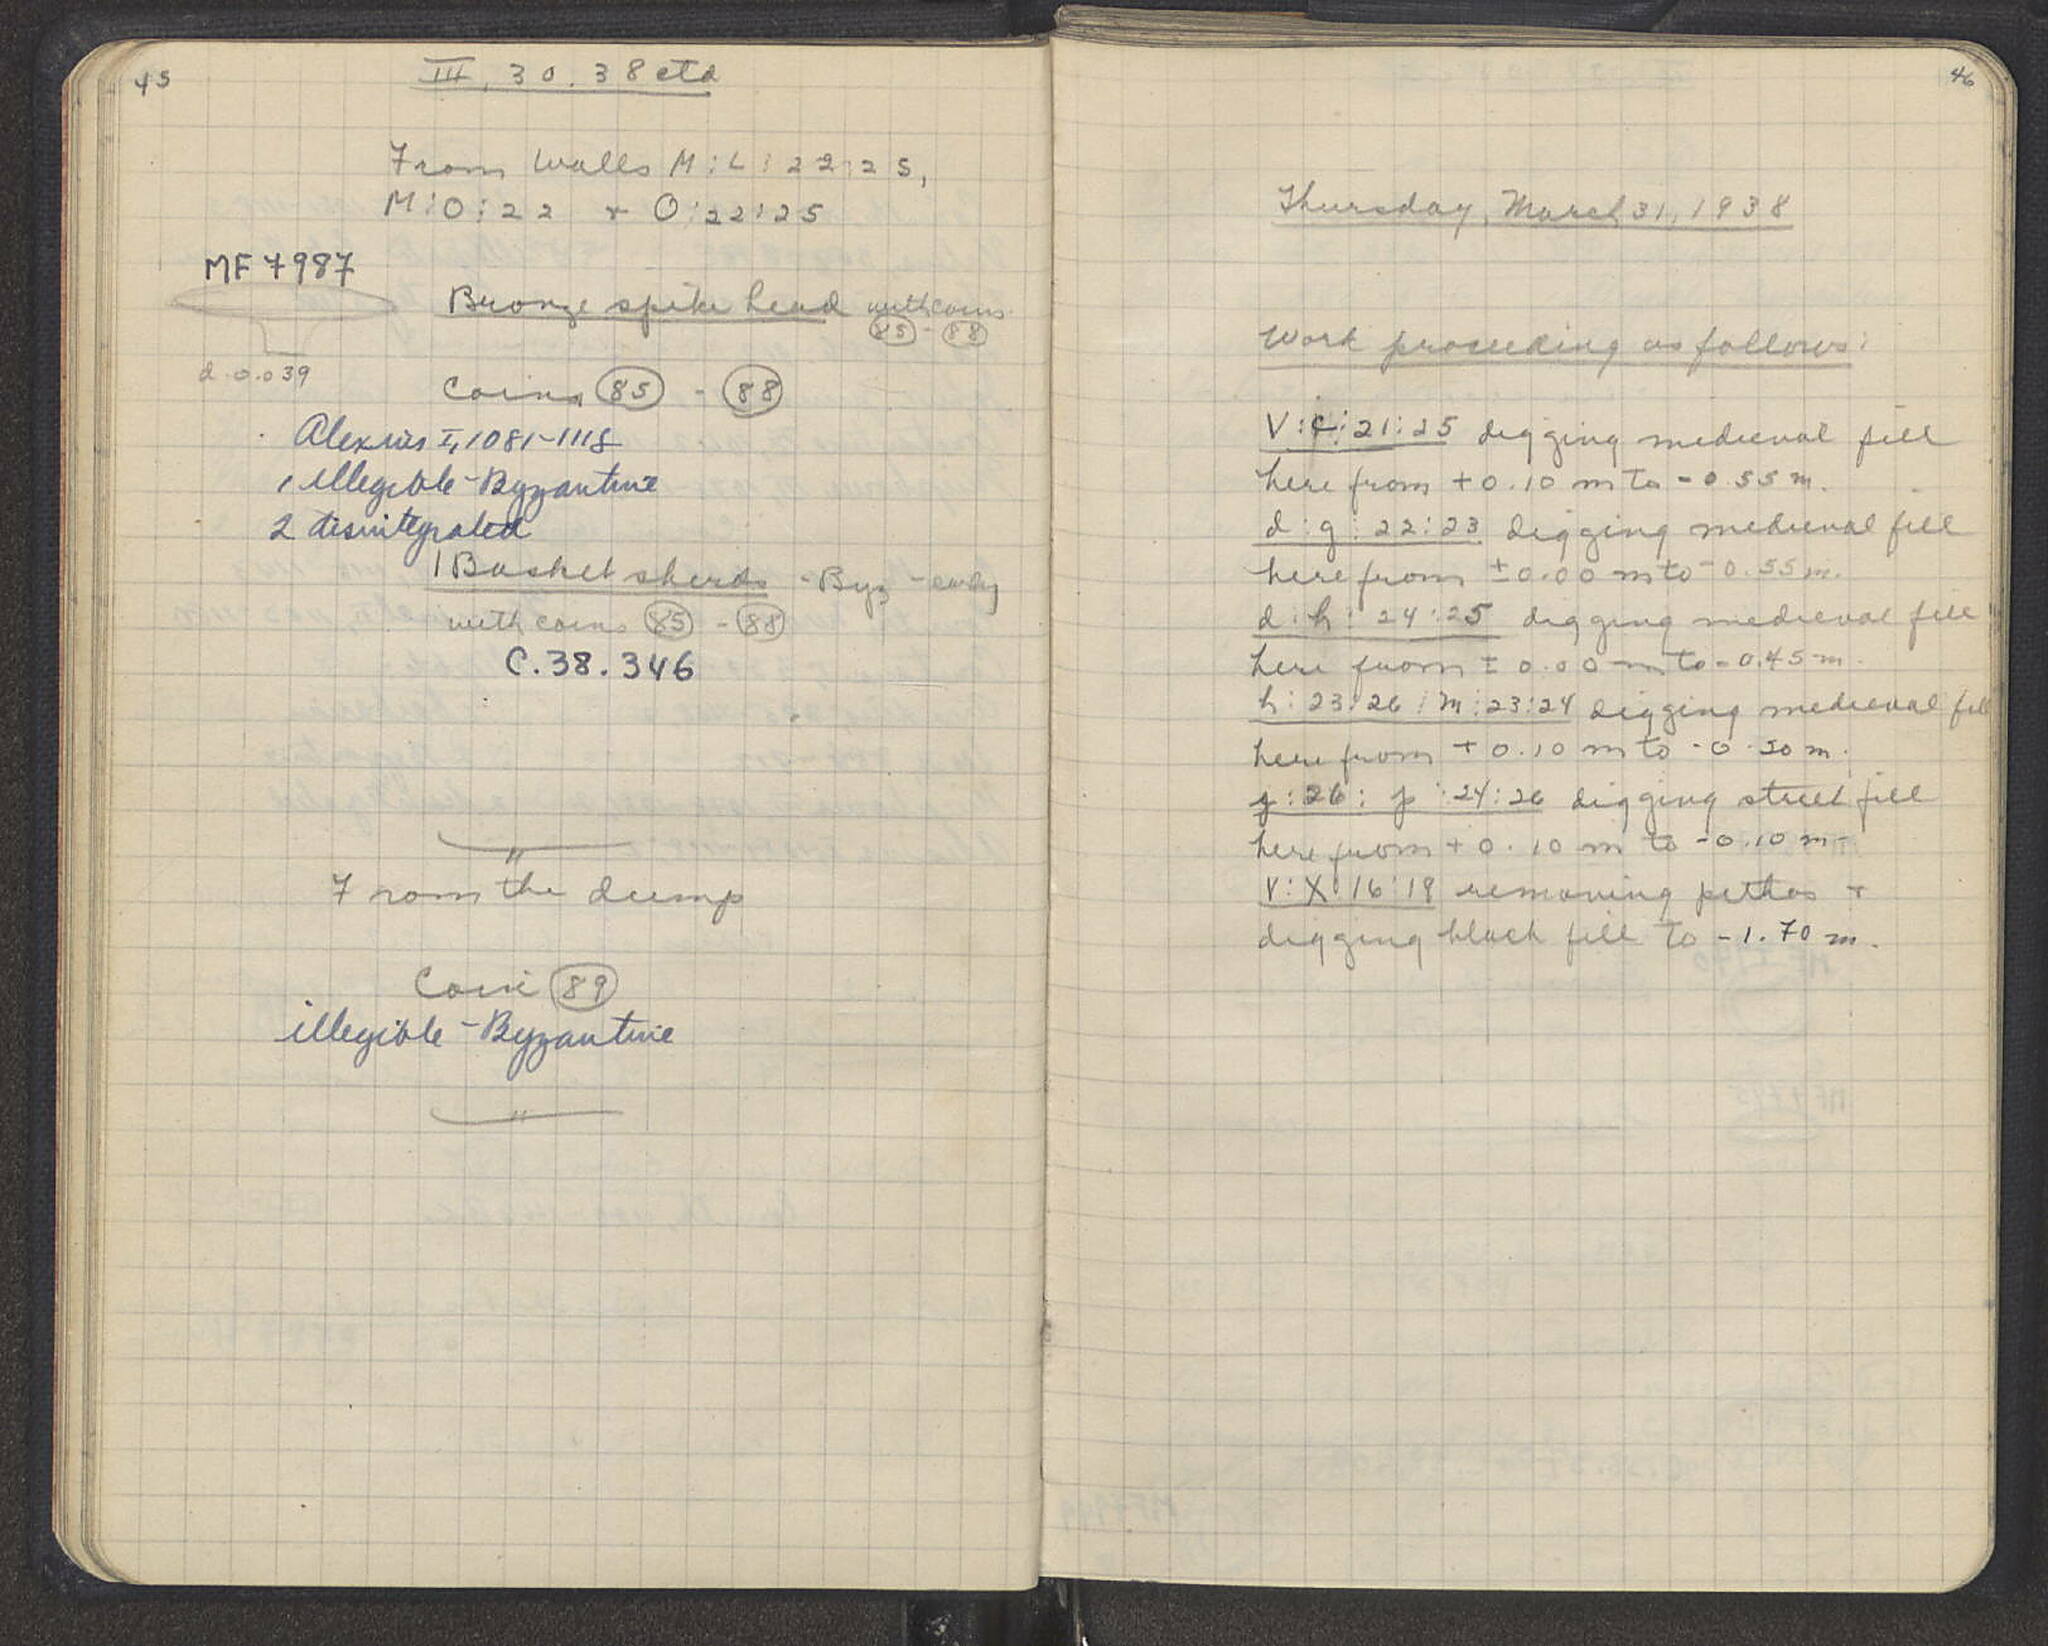 45
III, 30. 38 ctd
From Walls M:L:22:25,
M:O:22 + O:22:25
MF 7987
Bronze spike head with coins
85 - 88
d 0.039
Coins 85 - 88
Alexius I, 1081-1118
1 illegible - Byzantine
2 disintegrated
1 Basket sherds - Byz - early
with coins 85 - 88
C.38.346
"
From the dump
Coin 89
illegible - Byzantine
"
46
Thursday, March 31, 1938
Work proceeding as follows:
V:c:21:25 digging medieval fill
here from +0.10 m to -0.55 m.
d:g:22:23 digging medieval fill
here from ±0.00 m to -0.55 m.
d:h:24:25 digging medieval fill
here from ±0.00 m to -0.45 m.
h:23:26:m:23:24 digging medieval fill
here from +0.10 m to -0.50 m.
:26: p:24:26 digging street fill
here from +0.10 m to -0.10 m-
V:X:16:19 removing pithos +
digging black fill to -1.70 m.